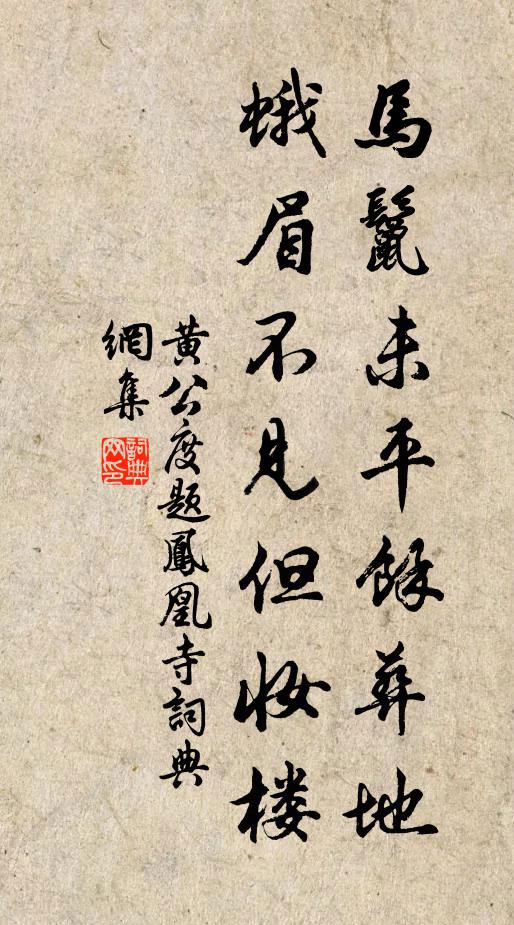 馬鬣未平餘葬地
蛾眉不見但妆楼
黄公度题鳳凰寺詞典
網集
詞典網印